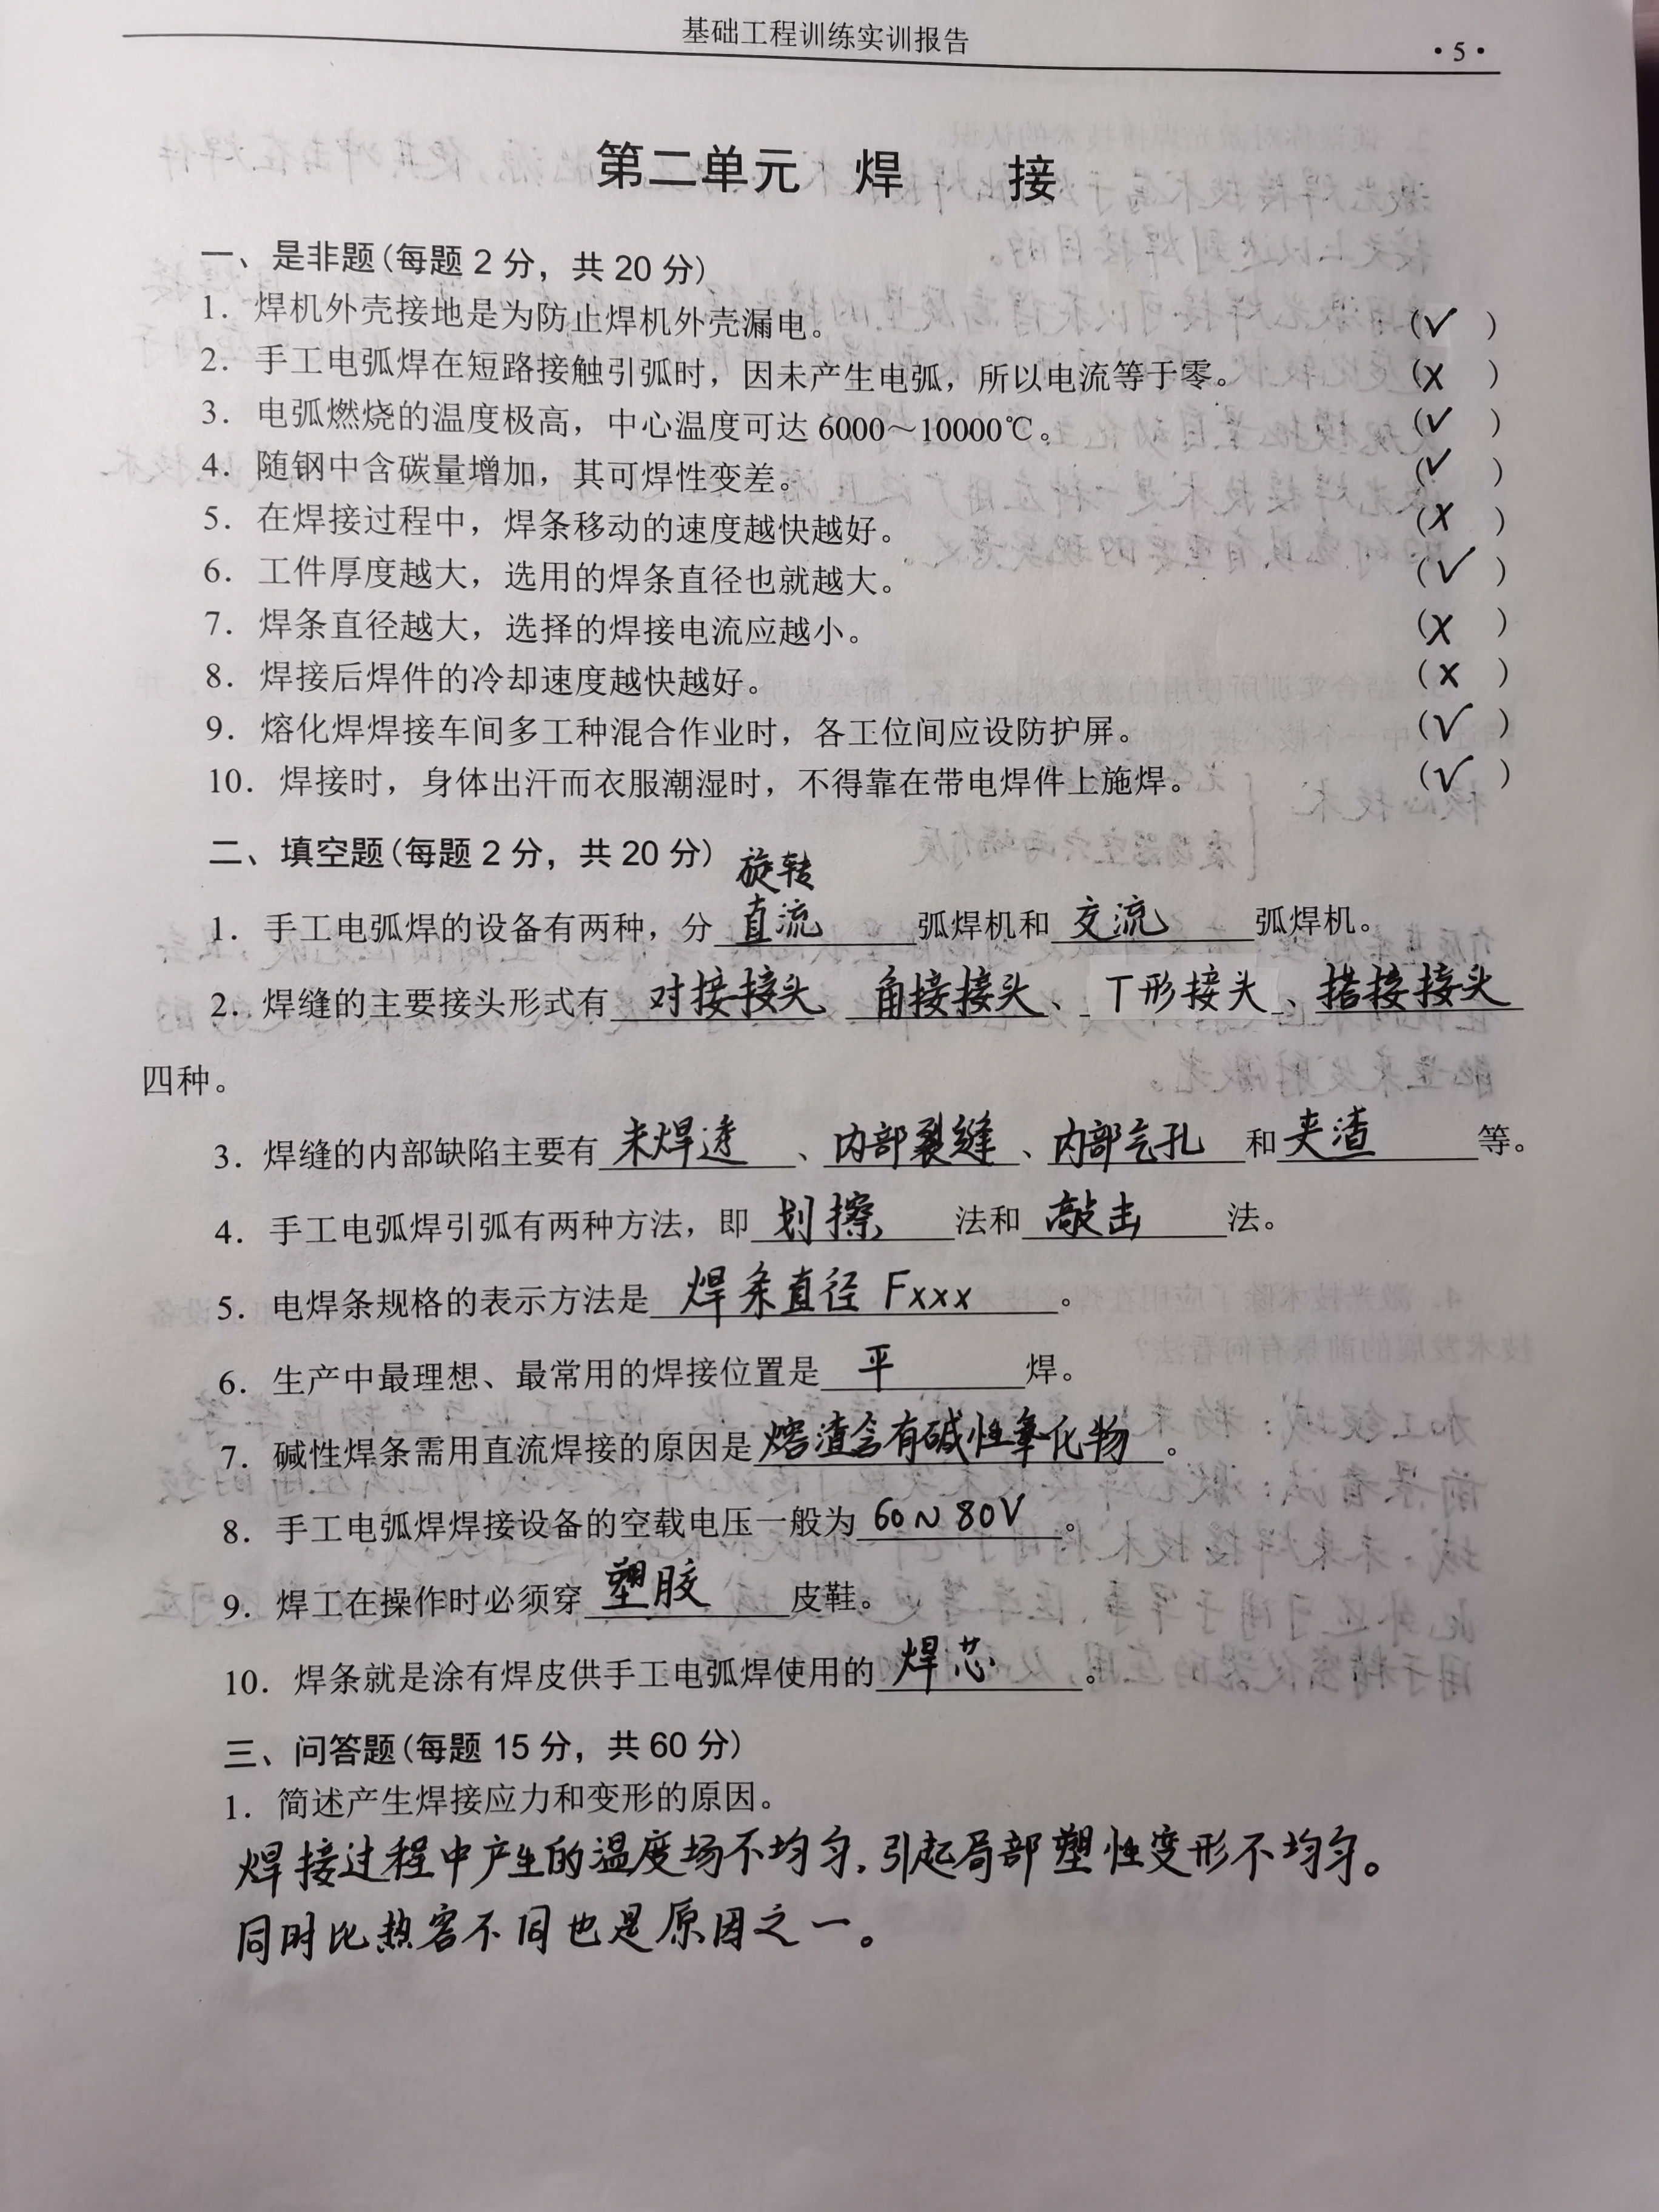 基础工程训练实训报告
·5·
第二单元 焊 接
一、是非题(每题2分，共20分)
1. 焊机外壳接地是为防止焊机外壳漏电。 (✓)
2. 手工电弧焊在短路接触引弧时，因未产生电弧，所以电流等于零。 (×)
3. 电弧燃烧的温度极高，中心温度可达6000～10000℃。 (✓)
4. 随钢中含碳量增加，其可焊性变差。 (✓)
5. 在焊接过程中，焊条移动的速度越快越好。 (×)
6. 工件厚度越大，选用的焊条直径也就越大。 (✓)
7. 焊条直径越大，选择的焊接电流应越小。 (×)
8. 焊接后焊件的冷却速度越快越好。 (×)
9. 熔化焊焊接车间多工种混合作业时，各工位间应设防护屏。 (✓)
10. 焊接时，身体出汗而衣服潮湿时，不得靠在带电焊件上施焊。 (✓)
二、填空题(每题2分，共20分)
旋转
1. 手工电弧焊的设备有两种，分直流弧焊机和交流弧焊机。
2. 焊缝的主要接头形式有对接接头、角接接头、T形接头、搭接接头
四种。
3. 焊缝的内部缺陷主要有未焊透、内部裂缝、内部气孔和夹渣等。
4. 手工电弧焊引弧有两种方法，即划擦法和敲击法。
5. 电焊条规格的表示方法是焊条直径Fxxx。
6. 生产中最理想、最常用的焊接位置是平焊。
7. 碱性焊条需用直流焊接的原因是熔渣含有碱性氧化物。
8. 手工电弧焊焊接设备的空载电压一般为60～80V。
9. 焊工在操作时必须穿塑胶皮鞋。
10. 焊条就是涂有焊皮供手工电弧焊使用的焊芯。
三、问答题(每题15分，共60分)
1. 简述产生焊接应力和变形的原因。
焊接过程中产生的温度场不均匀，引起局部塑性变形不均匀。
同时比热容不同也是原因之一。